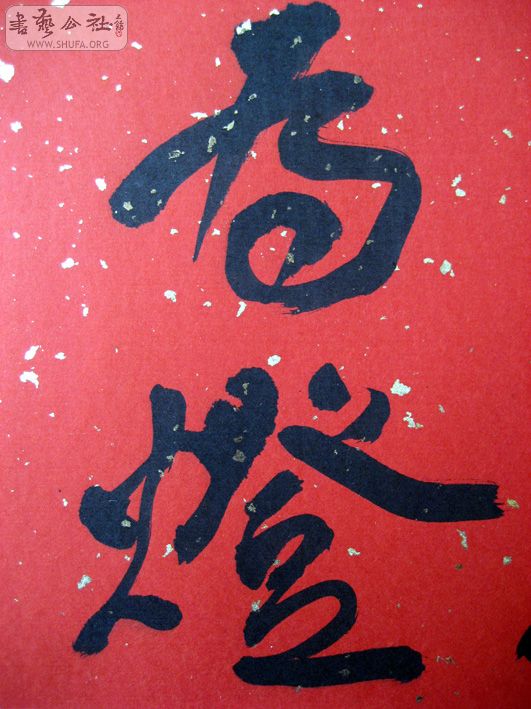 書藝公社
WWW.SHUFA.ORG
為
燈